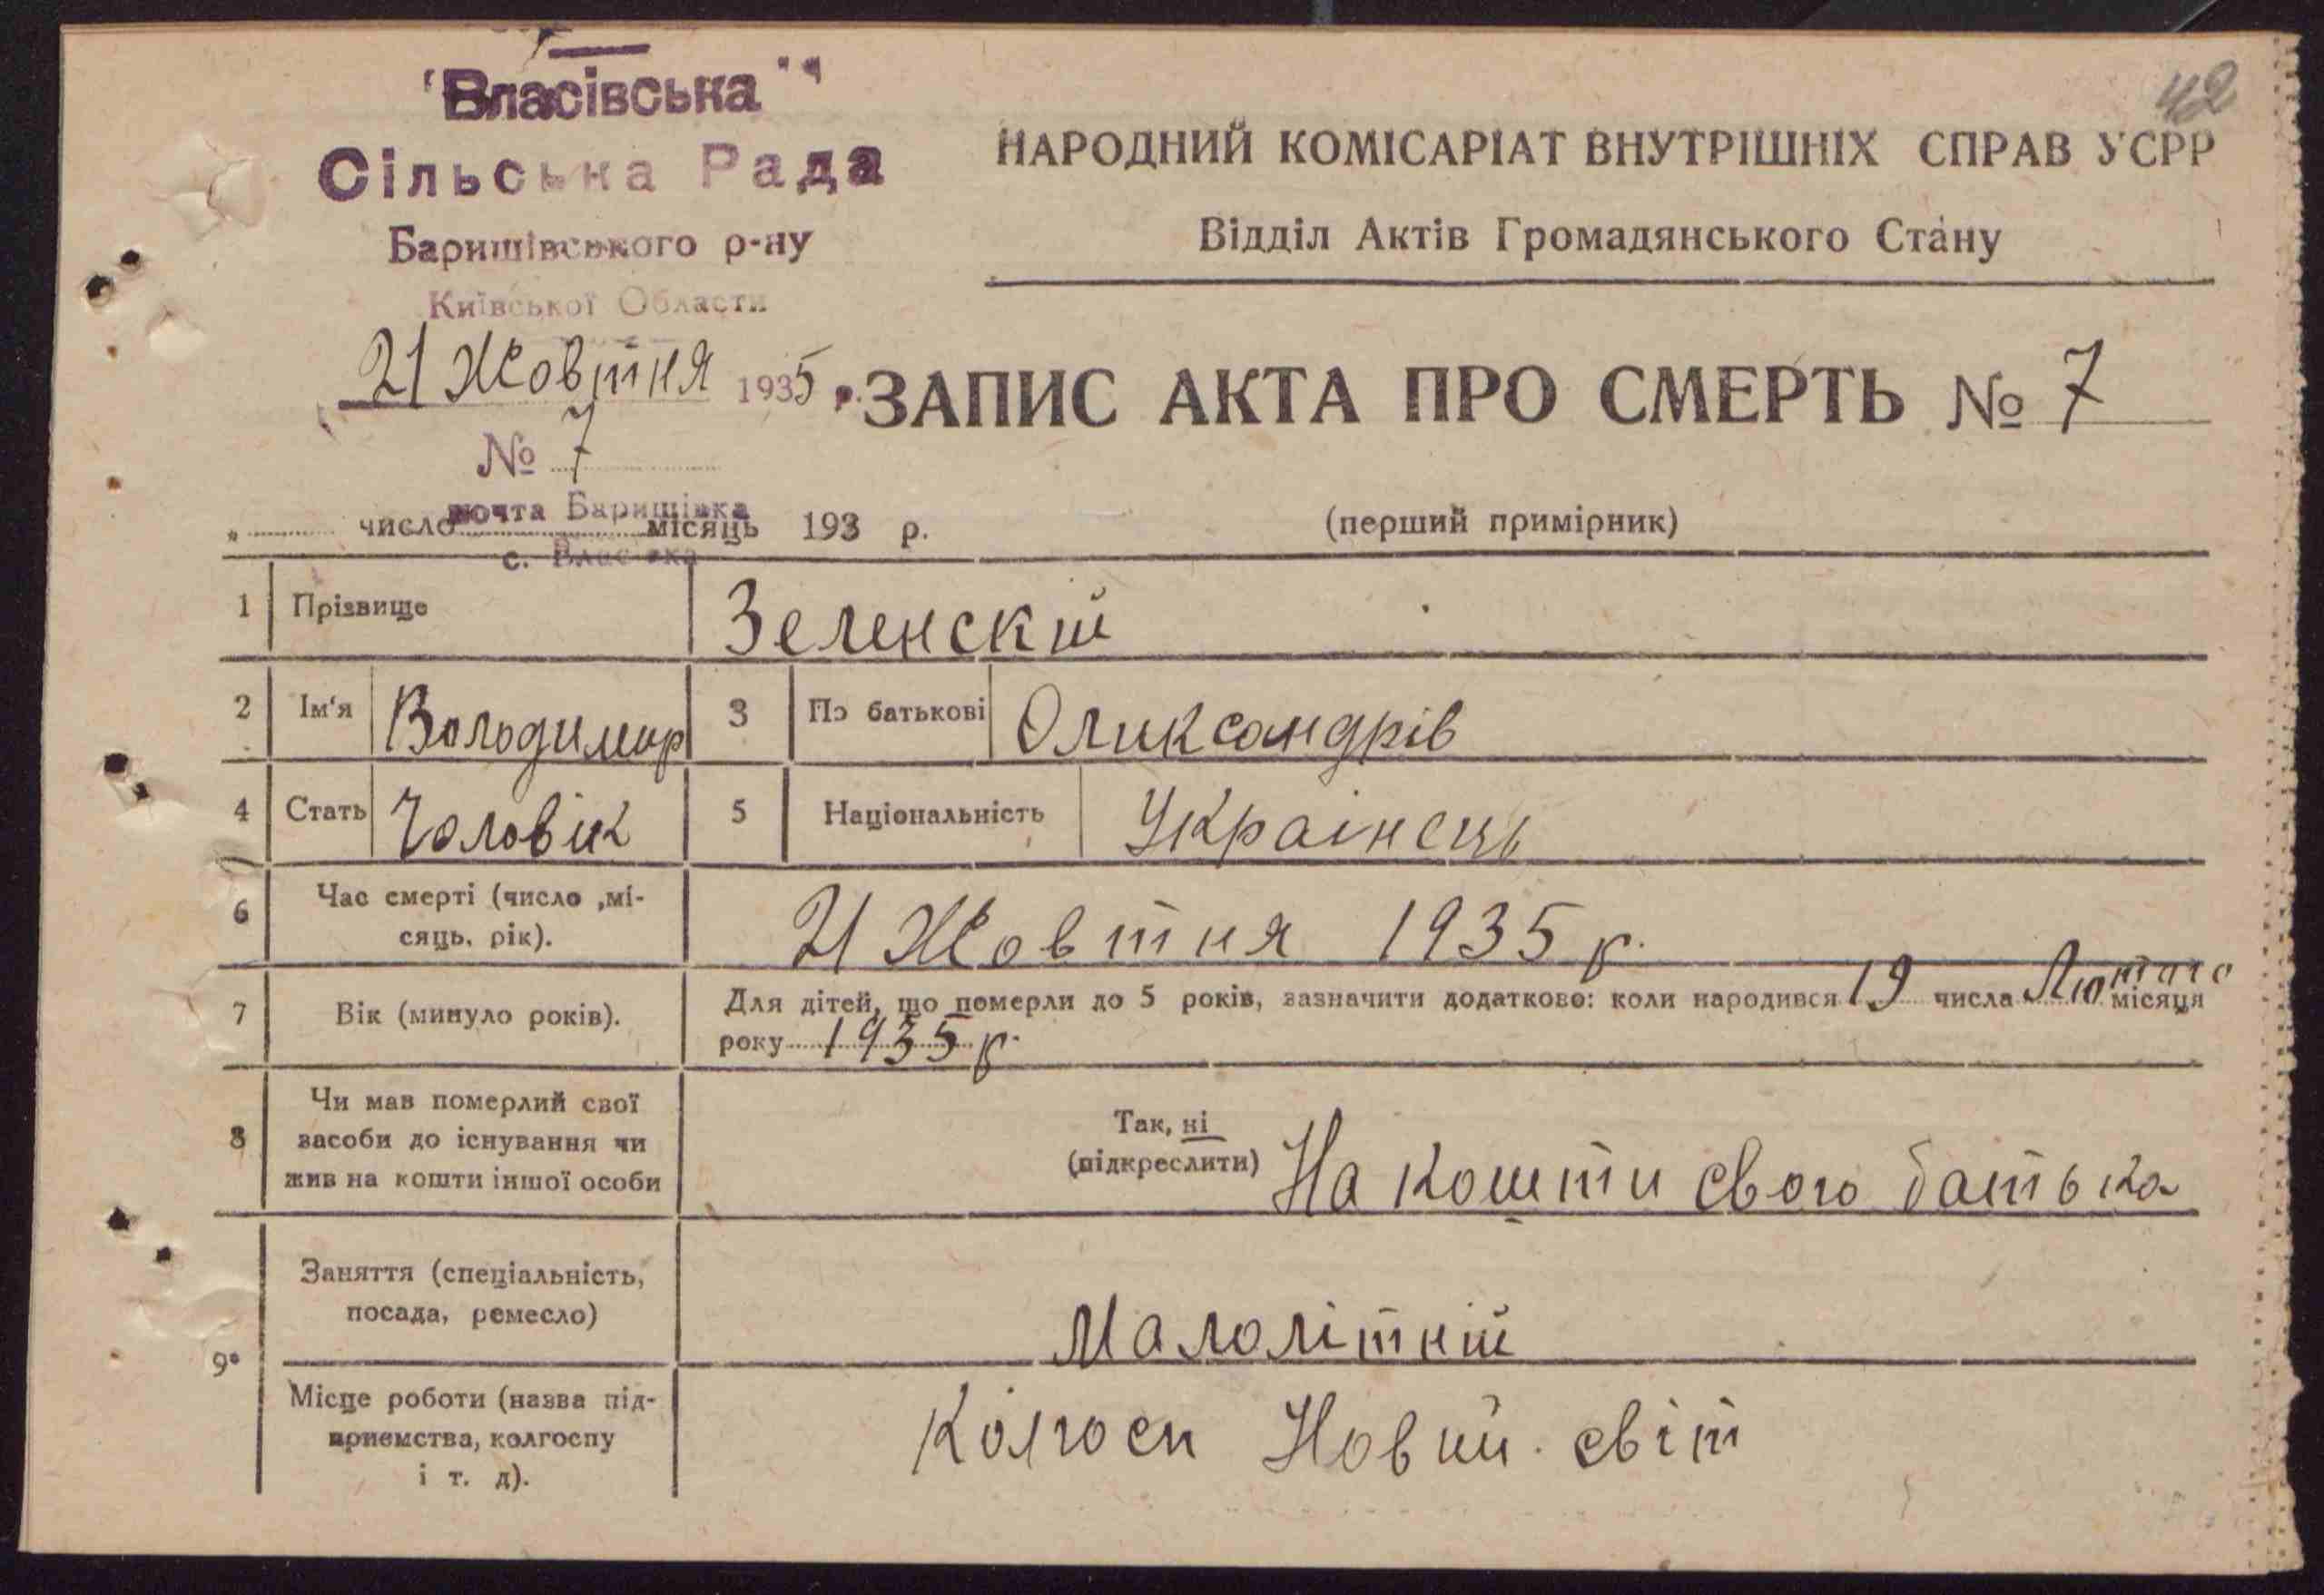 42
"Власівська"
Сільська Рада
Баришівського р-ну
Київської Области
21 Жовтня 1935 р.
№ 7
почта Баришівка
с. Власівка
НАРОДНИЙ КОМІСАРІАТ ВНУТРІШНІХ СПРАВ УСРР
Відділ Актів Громадянського Стану
ЗАПИС АКТА ПРО СМЕРТЬ № 7
число місяць 193 р.
(перший примірник)
1 Прізвище Зеленский
2 Ім'я Володимир 3 По батькові Оликсандрів
4 Стать Чоловік 5 Національність Украінець
6 Час смерті (число ,мі-
сяць, рік).
21 Жовтня 1935 р.
7 Вік (минуло років).
Для дітей, що померли до 5 років, зазначити додатково: коли народився 19 числа Лютого місяця
року 1935 р.
8 Чи мав померлий свої
засоби до існування чи
жив на кошти іншої особи
Так, ні
(підкреслити) На кошти свого батька
9 Заняття (спеціальність,
посада, ремесло)
Малолітний
Місце роботи (назва під-
приємства, колгоспу
і т. д).
Колгосп Новий світ